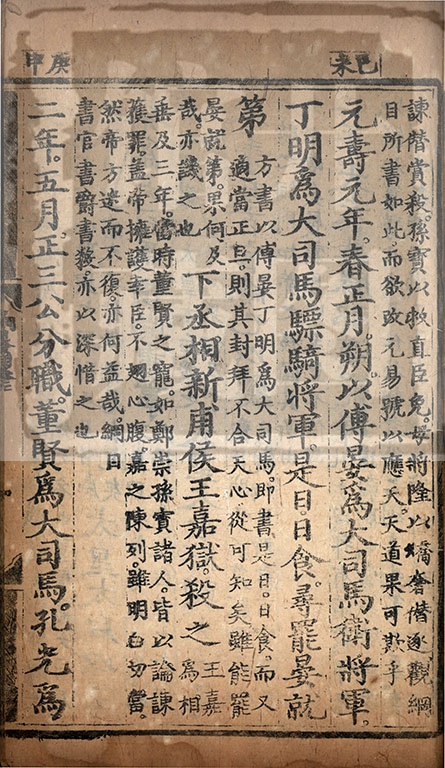 己未
庚申
諫僣賞殺。孫寶以救直臣免。毋將隆以驕奢僣逐。觀綱
目所書如此。而欲改元易號。以應天。天道果可欺乎
元壽元年。春正月。朔。以傅晏爲大司馬衛將軍。
丁明爲大司馬驃騎將軍。是日日食。尋罷晏就
第
方書以傅晏丁明爲大司馬。即書是日。日食。而又
適當正旦。則其封拜不合天心。從可知矣。雖能罷
晏就第。果何及
哉。亦譏之也
下丞相新甫侯王嘉獄。殺之
王嘉
爲相
垂及三年。當時董賢之寵。如鄭崇孫寶諸人。皆以論諫
獲罪。蓋帝擁護幸臣。不翅心腹。嘉之陳列。雖明白切當。
然帝方迷而不復。亦何益哉。綱目
書官書爵書殺。亦以深惜之也
二年。五月。正三公分職。董賢爲大司馬。孔光爲